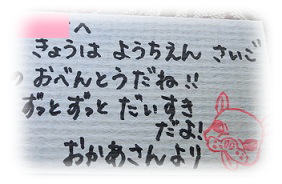 へ
きょうは ようちえん さいご
の おべんとうだね!!
ずっとずっと だいすき
だよ!
おかあさんより